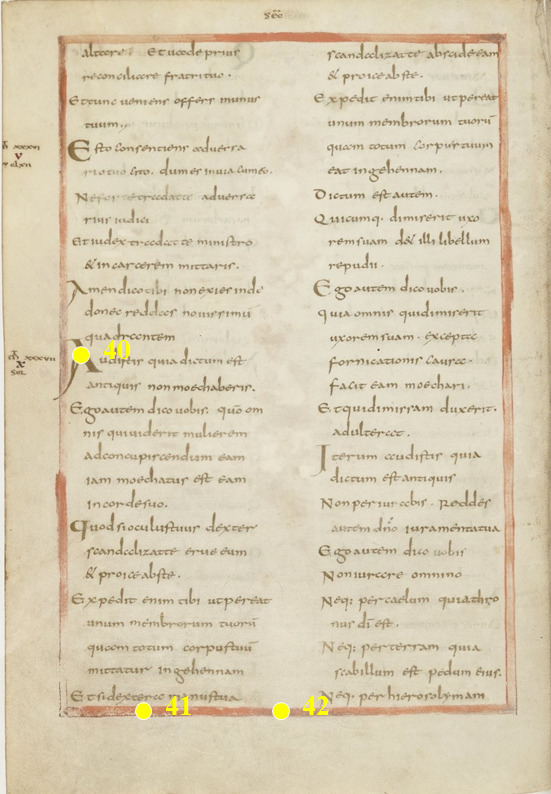 altare. Et uade prius
reconciliare fratri tuo.
Et tunc ueniens offers munus
tuum.
Esto consentiens aduersa
rio tuo cito. dum es in uia cum eo.
Ne forte tradat te aduersa
rius iudici
Et iudex tradat te ministro
& in carcerem mittaris.
Amen dico tibi non exies inde
donec reddas nouissimum
quadrantem
Audistis quia dictum est
antiquis non moechaberis.
Ego autem dico uobis. quō om
nis qui uiderit mulierem
ad concupiscendum eam
iam moechatus est eam
in corde suo.
Quod si oculus tuus dexter
scandalizat te erue eum
& proice abs te.
Expedit enim tibi ut pereat
unum membrorum tuorū
quam totum corpus tuū
mittatur in gehennam
Et si dextera manus tua
scandalizat te abscide eam
& proice abs te.
Expedit enim tibi ut pereat
unum membrorum tuorū
quam totum corpus tuum
eat in gehennam.
Dictum est autem.
Quicumq. dimiserit uxo
rem suam d& illi libellum
repudii.
Ego autem dico uobis.
quia omnis qui dimiserit
uxorem suam. excepta
fornicationis causa.
facit eam moechari.
Et qui dimissam duxerit.
adulterat.
Iterum audistis quia
dictum est antiquis
Non periurabis. Reddes
autem dño iuramenta tua
Ego autem dico uobis
Non iurare omnino
Neq: per caelum quia thro
nus dī est.
Neq: per terram quia
scabillum est pedum eius.
Neq: per hierosolymam
40
41
42